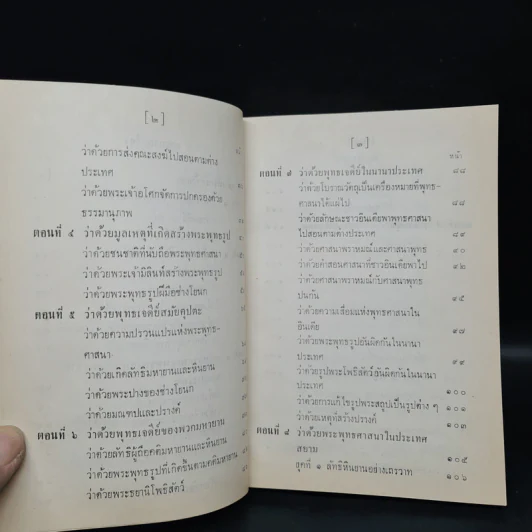 [ ๒ ]
ว่าด้วยการส่งคณะสงฆ์ไปสอนตามต่าง
ประเทศ
ว่าด้วยพระเจ้าอโศกจัดการปกครองด้วย
ธรรมานุภาพ
ตอนที่ ๔ ว่าด้วยมูลเหตุที่เกิดสร้างพระพุทธรูป
ว่าด้วยชนชาติที่นับถือพระพุทธศาสนา
ว่าด้วยพระเจ้ามิลินท์สร้างพระพุทธรูป
ว่าด้วยพระพุทธรูปฝีมือช่างโยนก
ตอนที่ ๕ ว่าด้วยพุทธเจดีย์สมัยคุปตะ
ว่าด้วยความปรวนแปรแห่งพระพุทธ-
ศาสนา
ว่าด้วยเกิดลัทธิมหายานและหินยาน
ว่าด้วยพระปางของช่างโยนก
ว่าด้วยมณฑปและปรางค์
ตอนที่ ๖ ว่าด้วยพุทธเจดีย์ของพวกมหายาน
ว่าด้วยลัทธิผู้ถือคติมหายานและหินยาน
ว่าด้วยพระพุทธรูปที่เกิดขึ้นตามคติมหายาน
ว่าด้วยพระธยานิโพธิสัตว์
[ ๓ ]
หน้า
ตอนที่ ๗ ว่าด้วยพุทธเจดีย์ในนานาประเทศ ๘๘
ว่าด้วยโบราณวัตถุเป็นเครื่องหมายที่พุทธ-
ศาสนาได้แผ่ไป ๘๘
ว่าด้วยลักษณะชาวอินเดียพาพุทธศาสนา
ไปสอนตามต่างประเทศ ๘๙
ว่าด้วยศาสนาพราหมณ์และศาสนาพุทธ ๙๐
ว่าด้วยคำสอนศาสนาที่ชาวอินเดียพาไป ๙๒
ว่าด้วยศาสนาพราหมณ์กับศาสนาพุทธ
ปนกัน ๙๕
ว่าด้วยความเสื่อมแห่งพุทธศาสนาใน
อินเดีย ๙๗
ว่าด้วยพระพุทธรูปอันผิดกันในนานา
ประเทศ ๙๙
ว่าด้วยรูปพระโพธิสัตว์อันผิดกันในนานา
ประเทศ ๑๐๐
ว่าด้วยการแก้ไขรูปพระสถูปเป็นรูปต่าง ๆ ๑๐๑
ว่าด้วยเหตุที่สร้างปรางค์ ๑๐๓
ตอนที่ ๘ ว่าด้วยพระพุทธศาสนาในประเทศ
สยาม ๑๐๕
ยุคที่ ๑ ลัทธิหินยานอย่างเถรวาท ๑๐๖